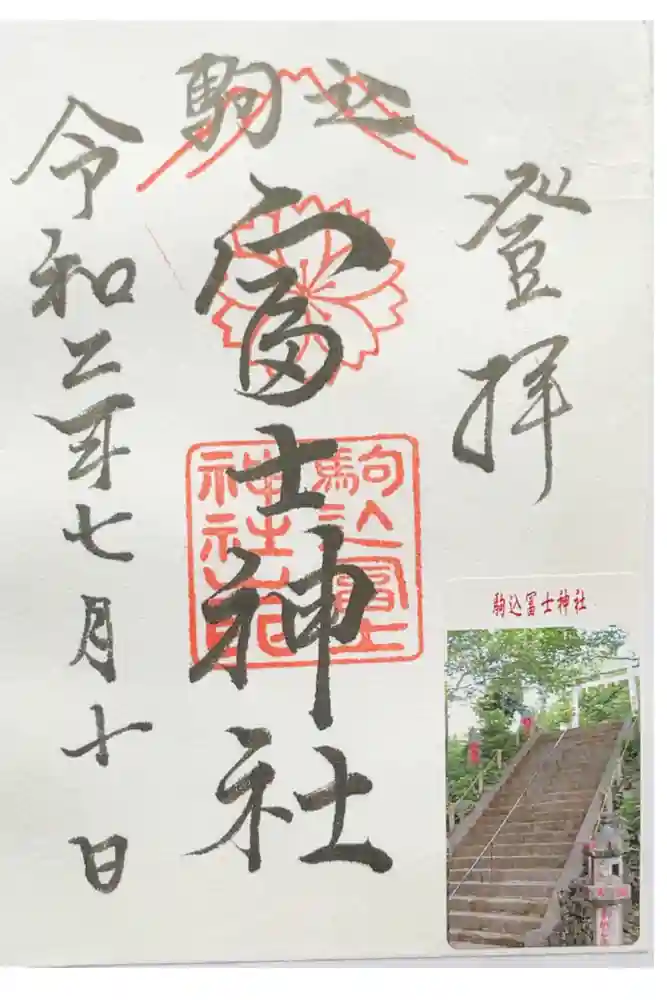 登拝
駒込
富士神社
駒込冨士
神社之印
令和二年七月十日
駒込冨士神社